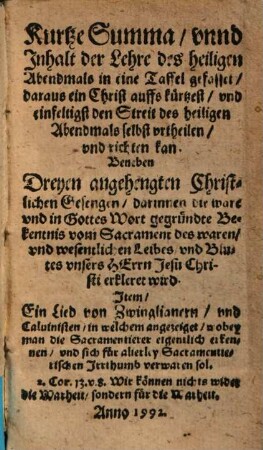 Kurtze Summa / vnnd
Inhalt der Lehre des heiligen
Abendmals in eine Taffel gefasset /
daraus ein Christ auffs kürtzest / vnd
einfeltigst den Streit des heiligen
Abendmals selbst vrtheilen /
vnd richten kan.
Beneben
Dreyen angehengten Christ-
lichen Gesengen / darinnen die ware
vnd in Gottes Wort gegründte Be-
kentnis vom Sacrament des waren /
vnd wesentlichen Leibes vnd Blu-
tes vnsers HErrn Jesu Chri-
sti erkleret wird.
Item /
Ein Lied von Zwinglianern / vnd
Caluinisten / in welchem angezeiget / wobey
man die Sacramentierer eigentlich erken-
nen / vnd sich für allerley Sacramentie-
rischen Irrthumb verwaren sol.
2. Cor. 13. v. 8. Wir können nichts wider
die Warheit / sondern für die Warheit.
Anno 1592.